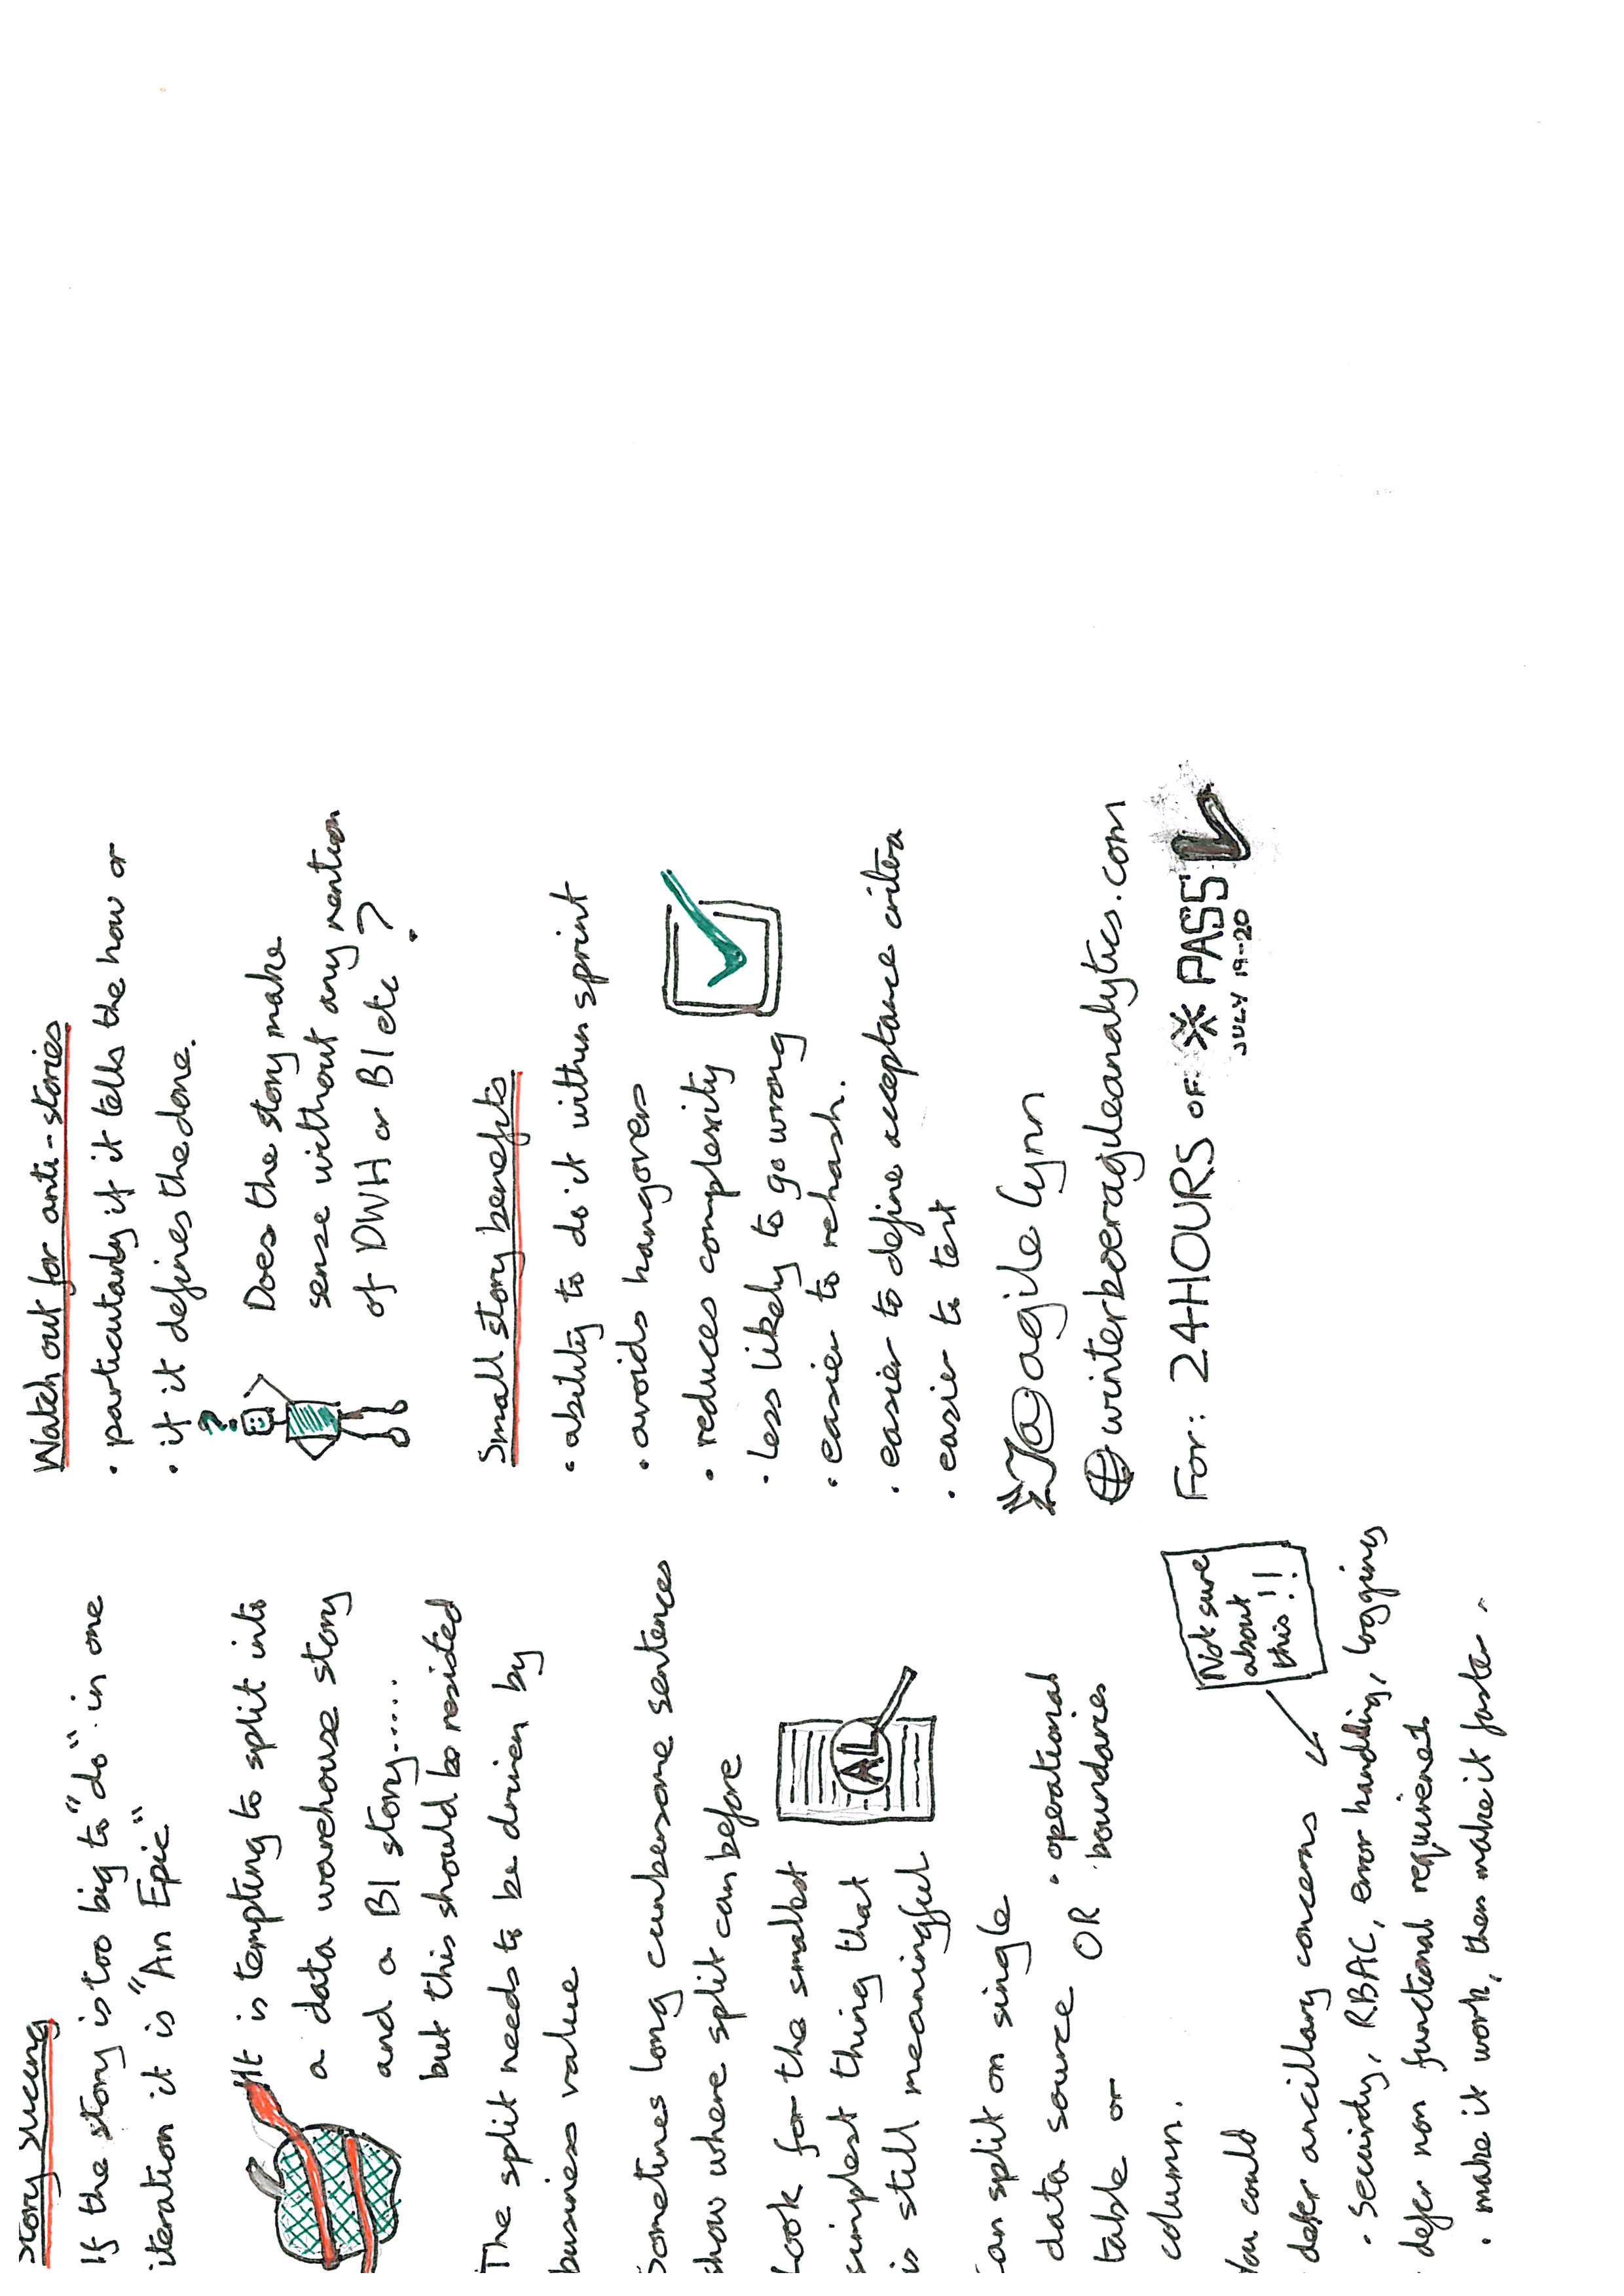 Story Slicing
If the story is too big to "do" in one
iteration it is "An Epic"
It is tempting to split into
a data warehouse story
and a BI story.....
but this should be resisted
The split needs to be driven by
business value
Sometimes long cumbersome sentences
show where split can before
Look for the smallest
simplest thing that
is still meaningful
AL
Can split on single
data source
table or
column.
OR
• operational
boundaries
You could
defer ancillary concerns
Not sure
about
this!!
• Security, RBAC, error handling, logging
defer non functional requirements
• make it work, then make it faster
Watch out for anti-stories
• particularly if it tells the how or
• if it defines the done.
?
Does the story make
sense without any mention
of DWH or BI etc ?
Small story benefits
• ability to do it within sprint
• avoids hangovers
• reduces complexity
• less likely to go wrong
• easier to rehash.
• easier to define acceptance critera
• easier to test
@agile lynn
winterboeragileanalytics.com
For: 24HOURS OF PASS
JULY 19-20